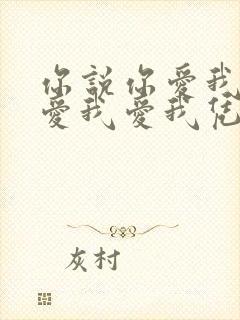 你說你愛我
愛我愛我凭
灰村